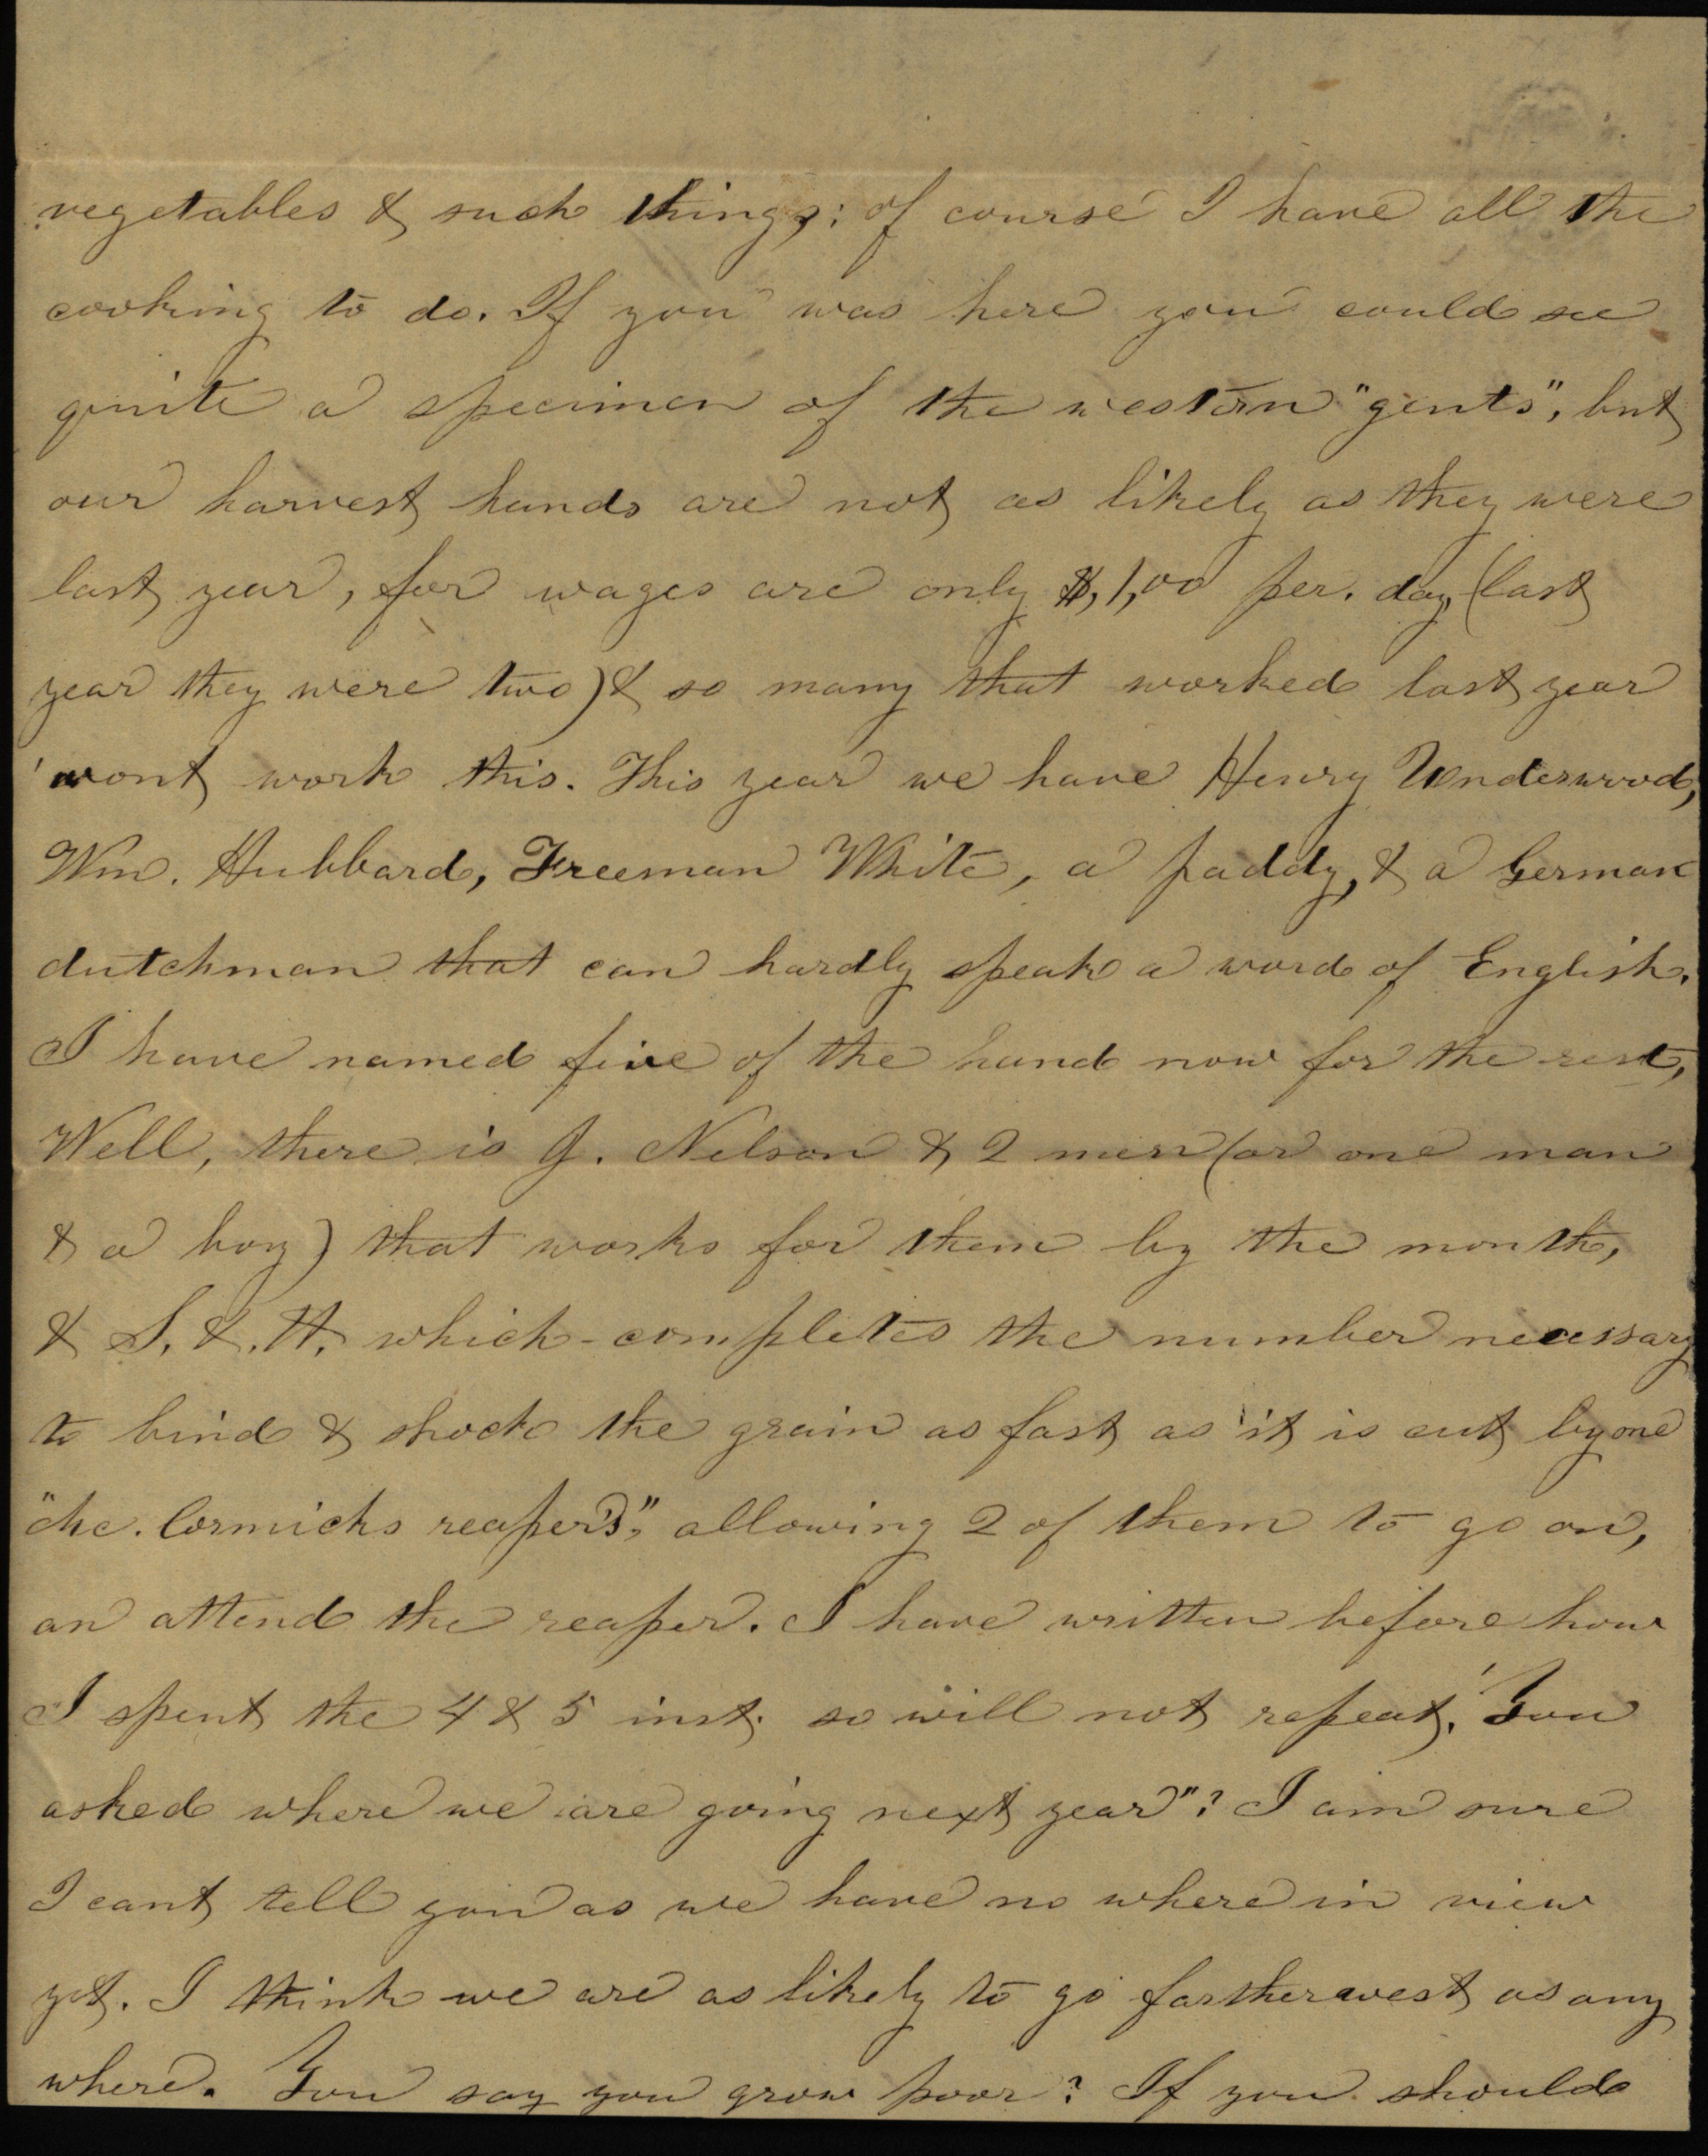 vegetables & such things; of course I have all the
cooking to do. If you was here you could see
quite a specimen of the western "gents", but
our harvest hands are not as likely as they were
last year, for wages are only $1,00 per. day, (last
year they were two) & so many that worked last year
wont work this. This year we have Henry Underwood,
Wm. Hubbard, Freeman White, a paddy, & a German
dutchman that can hardly speak a word of English.
I have named five of the hand now for the rest,
Well, there is J. Nelson & 2 men (or one man
& a boy) that works for them by the month,
& S. & H. which completes the number necessary
to bind & shock the grain as fast as it is cut by one
"Mc. Cormicks reapers", allowing 2 of them to go on,
an attend the reaper. I have written before how
I spent the 4 & 5 inst. so will not repeat. "You
asked where we are going next year"? I am sure
I cant tell you as we have no where in view
yet. I think we are as likely to go farther west as any
where. You say you grow poor? If you should